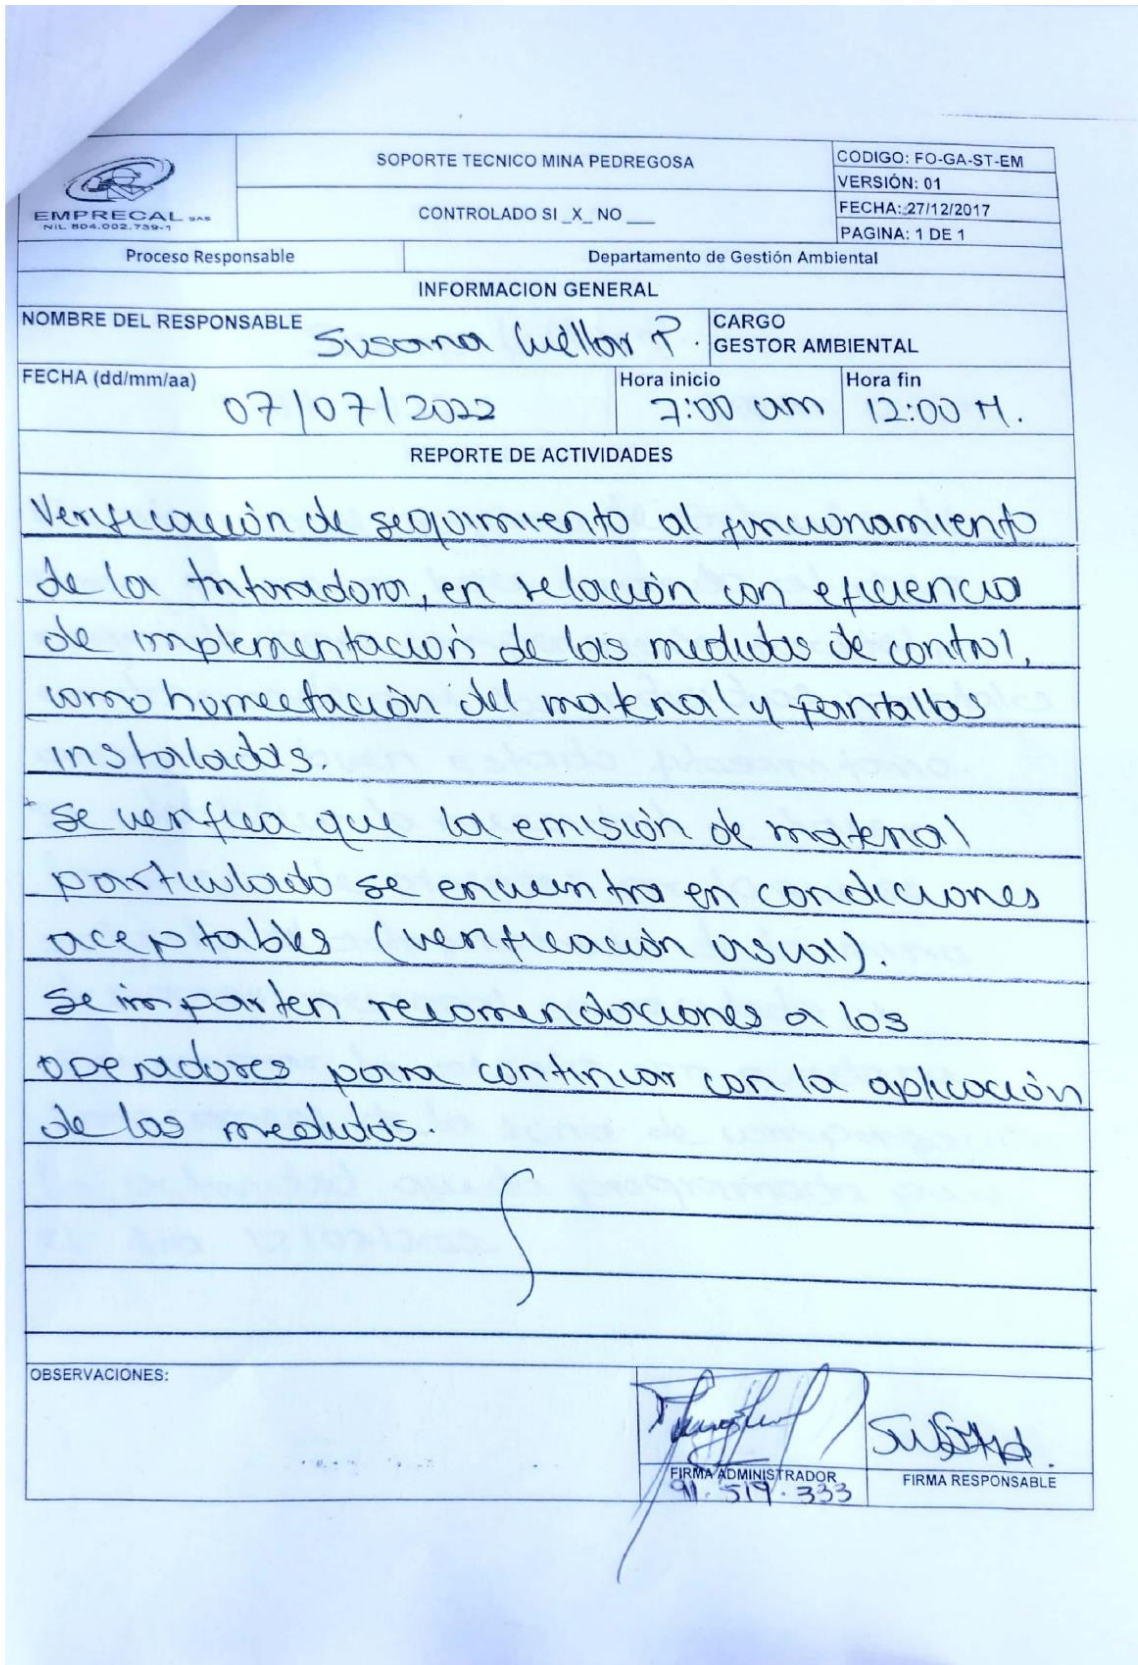 SOPORTE TECNICO MINA PEDREGOSA
CODIGO: FO-GA-ST-EM
VERSIÓN: 01
CONTROLADO SI _X_ NO ___
FECHA: 27/12/2017
PAGINA: 1 DE 1
EMPRECAL SAS
NIL 804.002.739-1
Proceso Responsable
Departamento de Gestión Ambiental
INFORMACION GENERAL
NOMBRE DEL RESPONSABLE Susana Cuellar P.
CARGO
GESTOR AMBIENTAL
FECHA (dd/mm/aa) 07/07/2022
Hora inicio 7:00 am
Hora fin 12:00 M.
REPORTE DE ACTIVIDADES
Verificación de seguimiento al funcionamiento
de la trituradora, en relación con eficiencia
de implementación de las medidas de control,
como humectación del material y pantallas
instaladas.
Se verifica que la emisión de material
particulado se encuentra en condiciones
aceptables (verificación visual).
Se imparten recomendaciones a los
operadores para continuar con la aplicación
de las medidas.
OBSERVACIONES:
FIRMA ADMINISTRADOR
91.519.333
Susana.
FIRMA RESPONSABLE